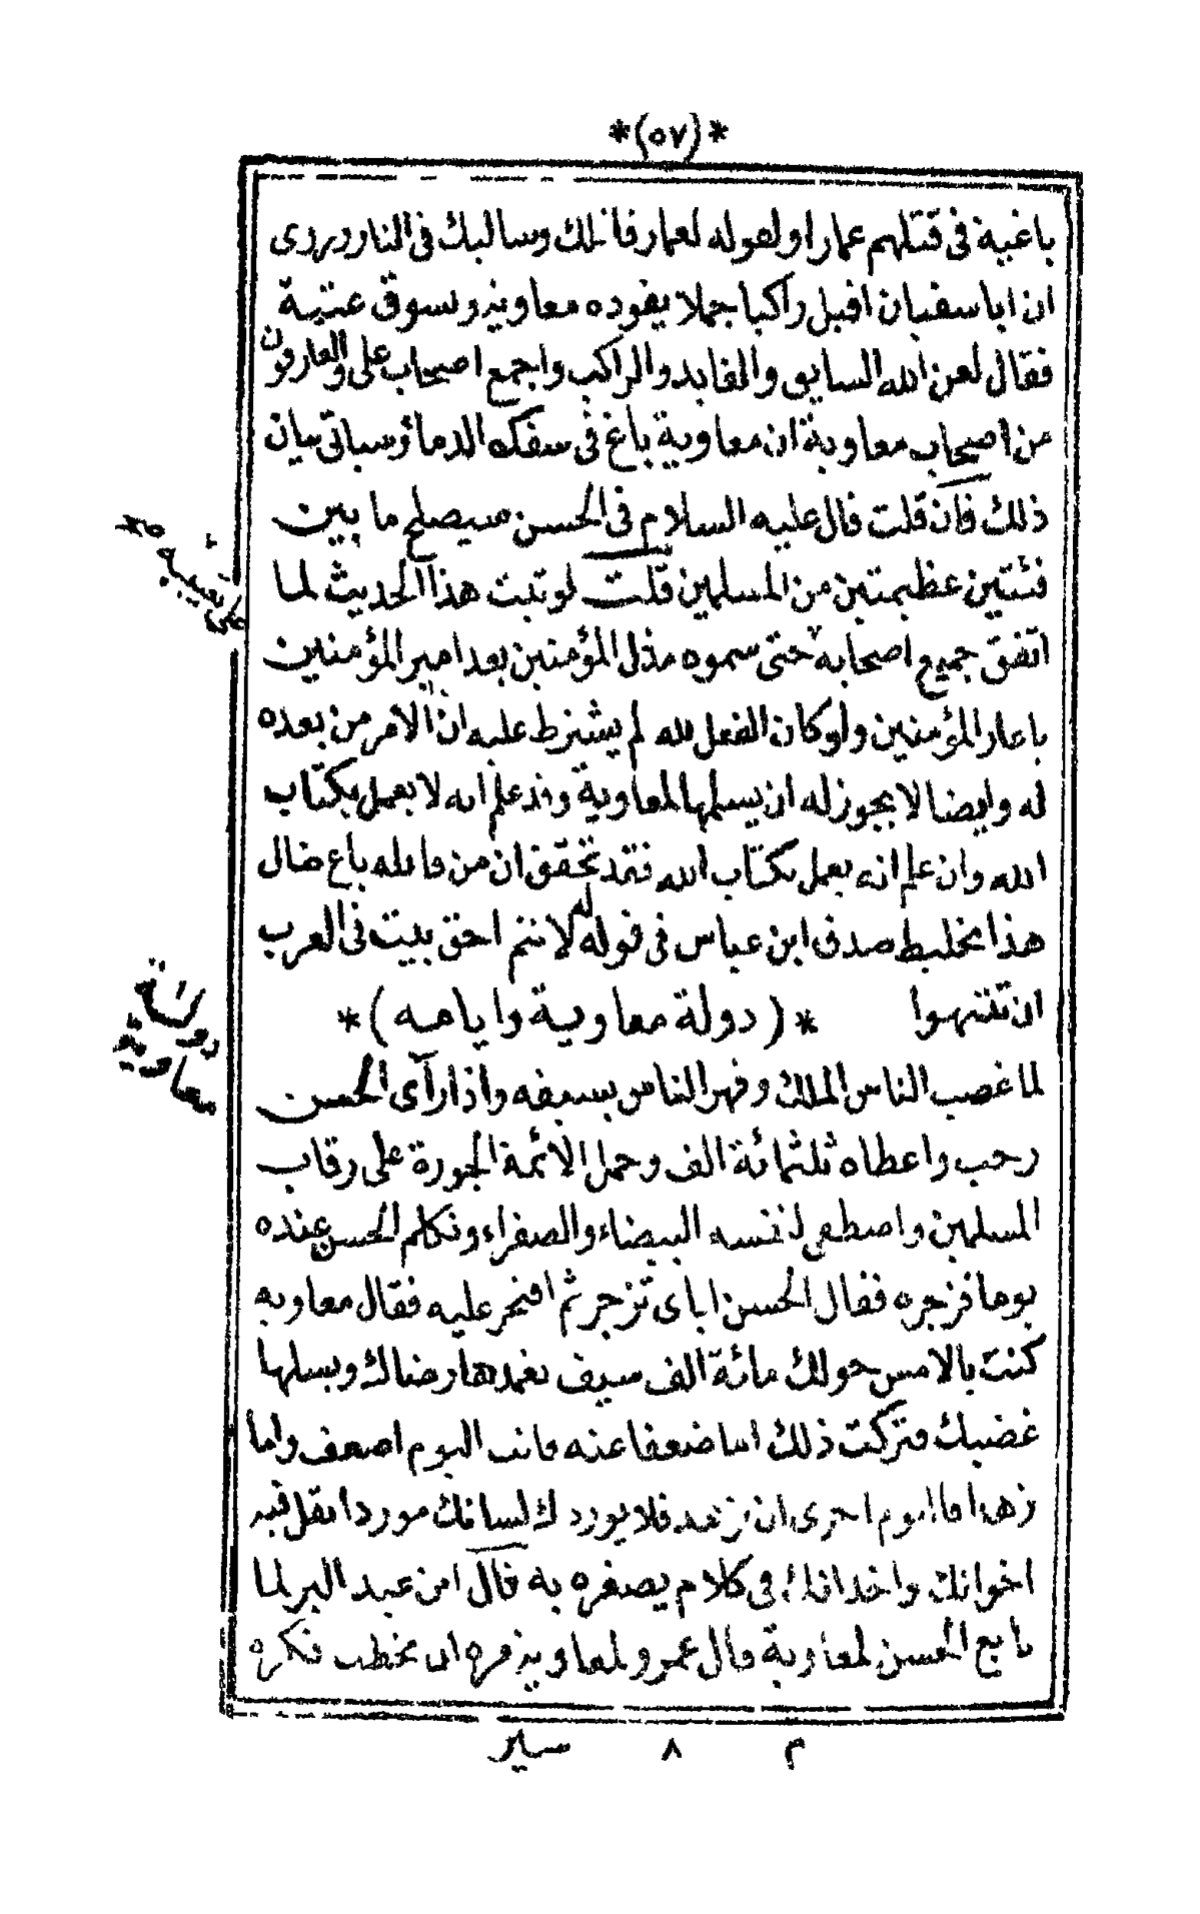 *(٥٧)*
باغية في قتلهم عمارا ولقوله لعمار قاتلك وسالبك في النار وروى
ان ابا سفيان اقبل راكبا جملا يقوده معاوية ويسوق عتبة
فقال لعن الله السايق والقايد والراكب واجمع اصحاب على والمارقون
من اصحاب معاوية ان معاوية باغ في سفك الدماء وسياتى بيان
ذلك فان قلت قال عليه السلام في الحسن سيصلح ما بين
فئتين عظيمتين من المسلمين قلت لو ثبت هذا الحديث لما
اتفق جميع اصحابه حتى سموه مذل المؤمنين بعد امير المؤمنين
يا عار المؤمنين ولو كان الفعل لله لم يشترط عليه ان الامر من بعده
له وايضا لا يجوز له ان يسلمها لمعاوية وقد علم انه لا يعمل بكتاب
الله وان علم انه يعمل بكتاب الله فقد تحقق ان من قاتله باغ ضال
هذا تخليط صدق ابن عباس في قوله له لانتم احق بيت في العرب
ان تنتهوا *(دولة معاوية وايامه)*
لما غصب الناس الملك وقهر الناس بسيفه واذا رآى الحسن
رحب واعطاه ثلثمائة الف وحمل الائمة الجورة على رقاب
المسلمين واصطفى لنفسه البيضاء والصفراء وتكلم الحسن عنده
يوما فزجره فقال الحسن اياى تزجر ثم افتخر عليه فقال معاوية
كنت بالامس حولك مائة الف سيف يغمدها رضاك ويسلها
غضبك فتركت ذلك اما ضعفا عنه فانت اليوم اضعف واما
زهدا فاليوم احرى ان تزهد فلا يوردك لسانك موردا تقل فيه
اخوانك واخدانك في كلام يصغره به قال ابن عبد البر لما
بايع الحسن لمعاوية قال عمرو لمعاوية مره ان يخطب فكره
م ٨ سير
على تعيبه
دولة
معاوية